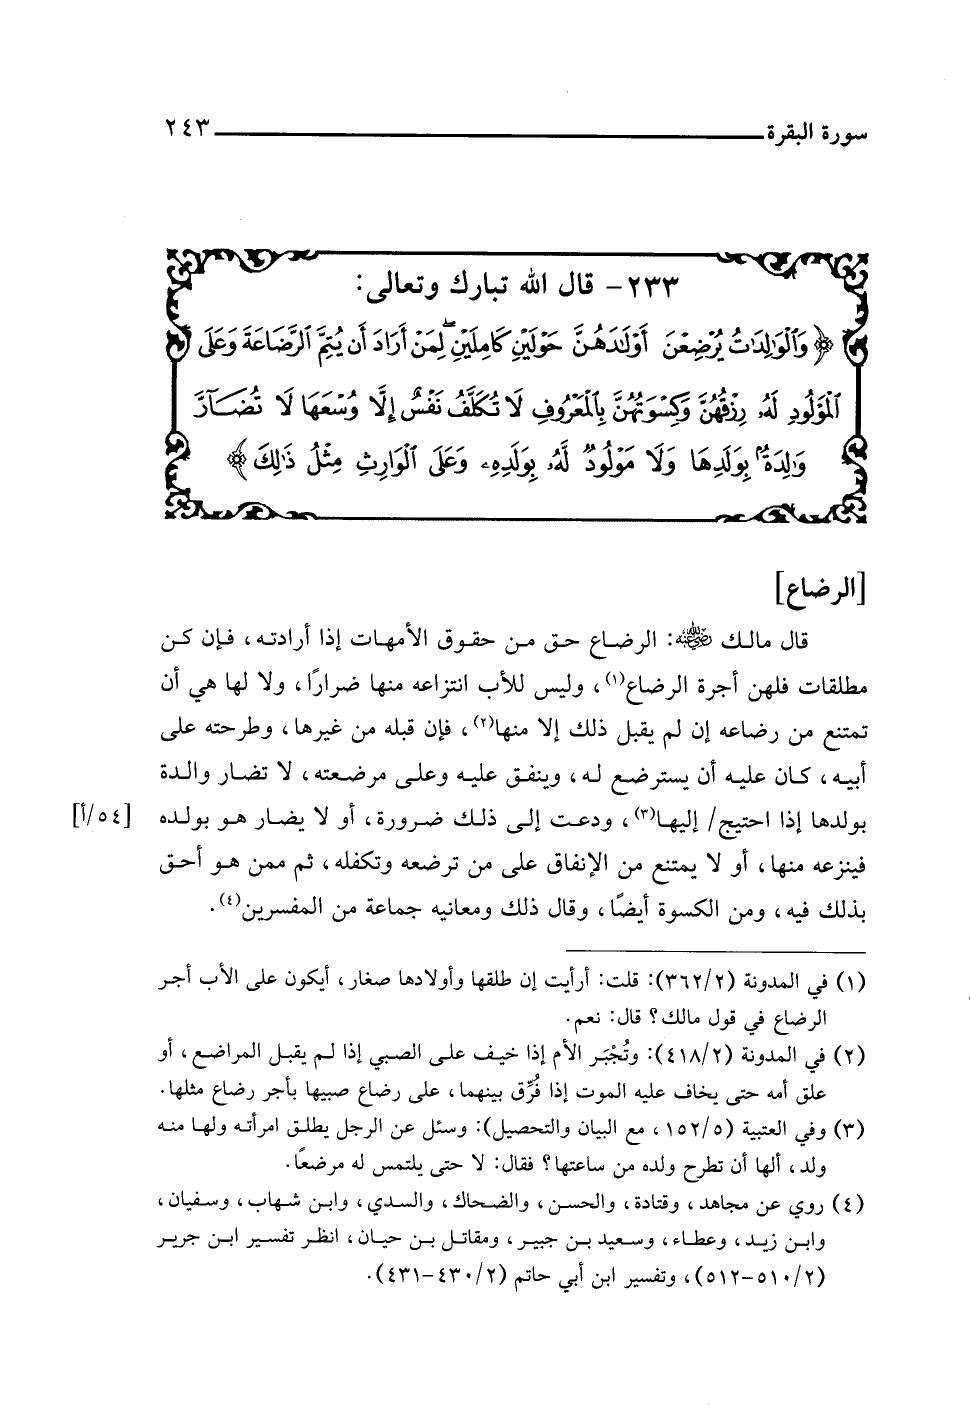 سورة البقرة ٢٤٣
٢٣٣ - قال الله تبارك وتعالى:
﴿ وَٱلْوَٰلِدَٰتُ يُرْضِعْنَ أَوْلَٰدَهُنَّ حَوْلَيْنِ كَامِلَيْنِ ۖ لِمَنْ أَرَادَ أَن يُتِمَّ ٱلرَّضَاعَةَ وَعَلَى
ٱلْمَوْلُودِ لَهُۥ رِزْقُهُنَّ وَكِسْوَتُهُنَّ بِٱلْمَعْرُوفِ لَا تُكَلَّفُ نَفْسٌ إِلَّا وُسْعَهَا لَا تُضَآرَّ
وَٰلِدَةٌۢ بِوَلَدِهَا وَلَا مَوْلُودٌ لَّهُۥ بِوَلَدِهِۦ وَعَلَى ٱلْوَارِثِ مِثْلُ ذَٰلِكَ ﴾
[الرضاع]
قال مالك رضي الله عنه: الرضاع حق من حقوق الأمهات إذا أرادته، فإن كن
مطلقات فلهن أجرة الرضاع(١)، وليس للأب انتزاعه منها ضرارًا، ولا لها هي أن
تمتنع من رضاعه إن لم يقبل ذلك إلا منها(٢)، فإن قبله من غيرها، وطرحته على
أبيه، كان عليه أن يسترضع له، وينفق عليه وعلى مرضعته، لا تضار والدة
بولدها إذا احتيج/ إليها(٣)، ودعت إلى ذلك ضرورة، أو لا يضار هو بولده [٥٤/أ]
فينزعه منها، أو لا يمتنع من الإنفاق على من ترضعه وتكفله، ثم ممن هو أحق
بذلك فيه، ومن الكسوة أيضًا، وقال ذلك ومعانيه جماعة من المفسرين(٤).
(١) في المدونة (٣٦٢/٢): قلت: أرأيت إن طلقها وأولادها صغار، أيكون على الأب أجر
الرضاع في قول مالك؟ قال: نعم.
(٢) في المدونة (٤١٨/٢): وتُجْبَر الأم إذا خيف على الصبي إذا لم يقبل المراضع، أو
علق أمه حتى يخاف عليه الموت إذا فُرِّق بينهما، على رضاع صبيها بأجر رضاع مثلها.
(٣) وفي العتبية (١٥٢/٥، مع البيان والتحصيل): وسئل عن الرجل يطلق امرأته ولها منه
ولد، ألها أن تطرح ولده من ساعتها؟ فقال: لا حتى يلتمس له مرضعًا.
(٤) روي عن مجاهد، وقتادة، والحسن، والضحاك، والسدي، وابن شهاب، وسفيان،
وابن زيد، وعطاء، وسعيد بن جبير، ومقاتل بن حيان، انظر تفسير ابن جرير
(٥١٠/٢-٥١٢)، وتفسير ابن أبي حاتم (٤٣٠/٢-٤٣١).